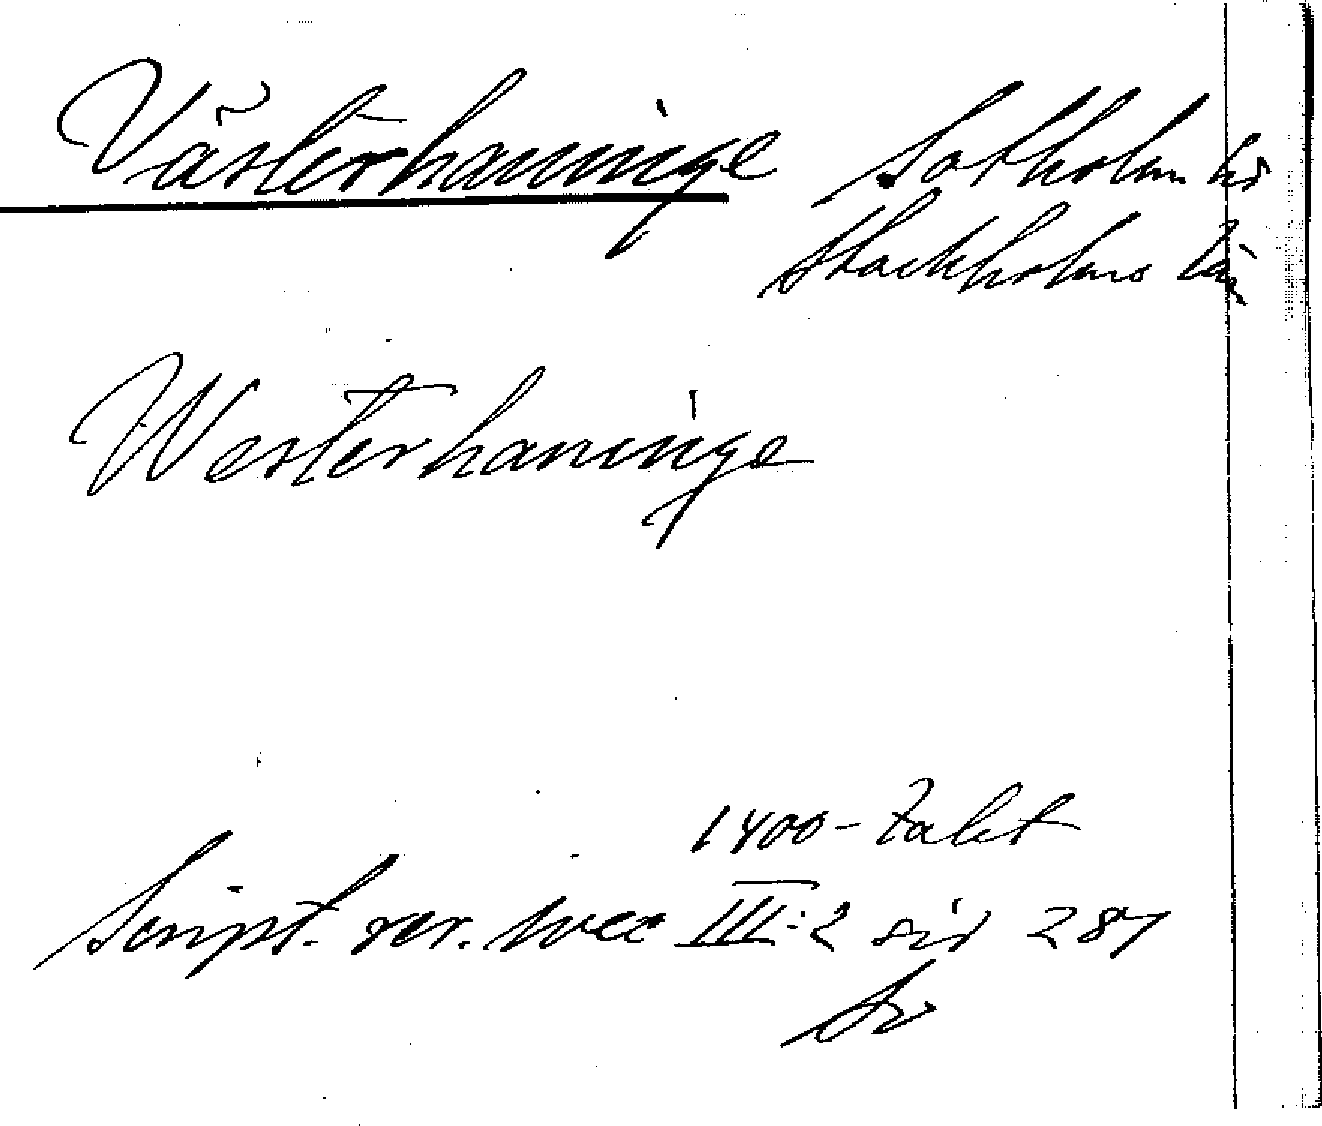 Västerhaninge Sotholms hd
Stockholms län
Westerhaninge
1400-talet
Script. rer. svec III:2 sid 287
Sv